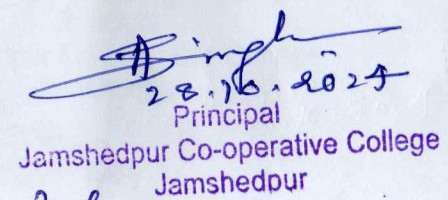 Singh
Principal
Jamshedpur Co-operative College
Jamshedpur